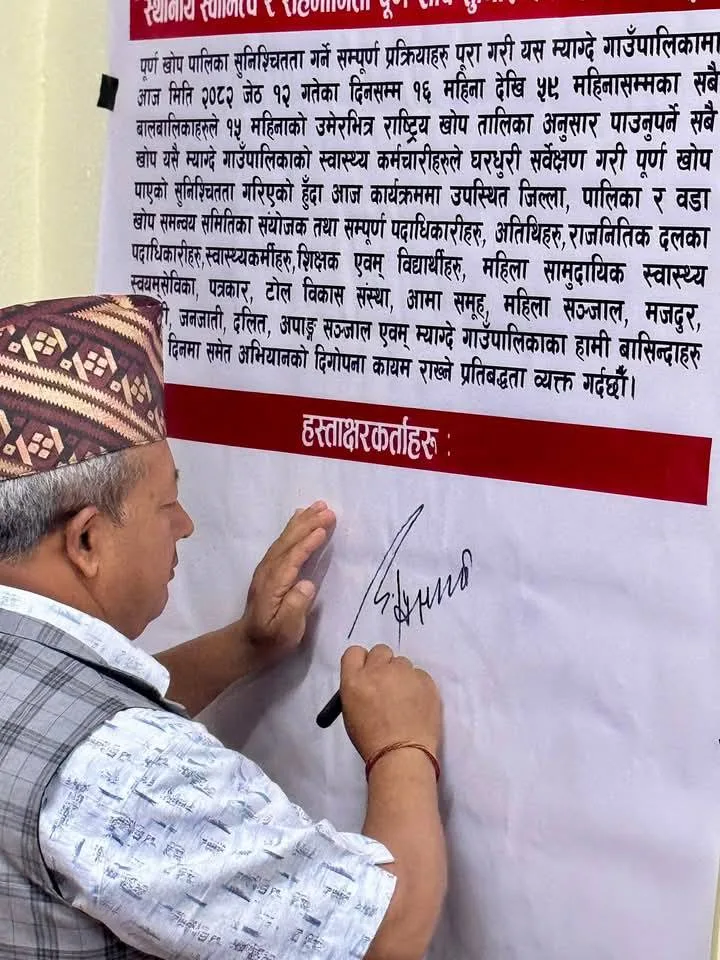 स्थानीय स्वामित्व र
पूर्ण खोप पालिका सुनिश्चितता गर्ने सम्पूर्ण प्रक्रियाहरु पूरा गरी यस म्याग्दे गाउँपालिकामा
आज मिति २०८२ जेठ १२ गतेका दिनसम्म १६ महिना देखि ५९ महिनासम्मका सबै
बालबालिकाहरुले १५ महिनाको उमेरभित्र राष्ट्रिय खोप तालिका अनुसार पाउनुपर्ने सबै
खोप यसै म्याग्दे गाउँपालिकाको स्वास्थ्य कर्मचारीहरुले घरधुरी सर्वेक्षण गरी पूर्ण खोप
पाएको सुनिश्चितता गरिएको हुँदा आज कार्यक्रममा उपस्थित जिल्ला, पालिका र वडा
खोप समन्वय समितिका संयोजक तथा सम्पूर्ण पदाधिकारीहरु, अतिथिहरु,राजनितिक दलका
पदाधिकारीहरु,स्वास्थ्यकर्मीहरु,शिक्षक एवम् विद्यार्थीहरु, महिला सामुदायिक स्वास्थ्य
स्वयमसेविका, पत्रकार, टोल विकास संस्था, आमा समूह, महिला सञ्जाल, मजदुर,
जनजाती, दलित, अपाङ्ग सञ्जाल एवम् म्याग्दे गाउँपालिकाका हामी बासिन्दाहरु
दिनमा समेत अभियानको दिगोपना कायम राख्ने प्रतिबद्धता व्यक्त गर्दछौं।
हस्ताक्षरकर्ताहरु :